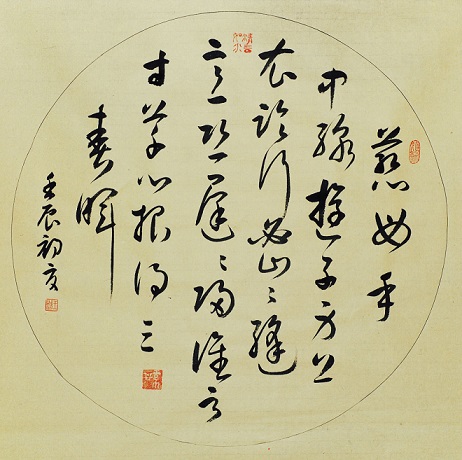 慈母手
中線遊子身上
衣臨行密〻縫
意恐遲〻歸誰言
寸草心報得三
春暉
壬辰初夏